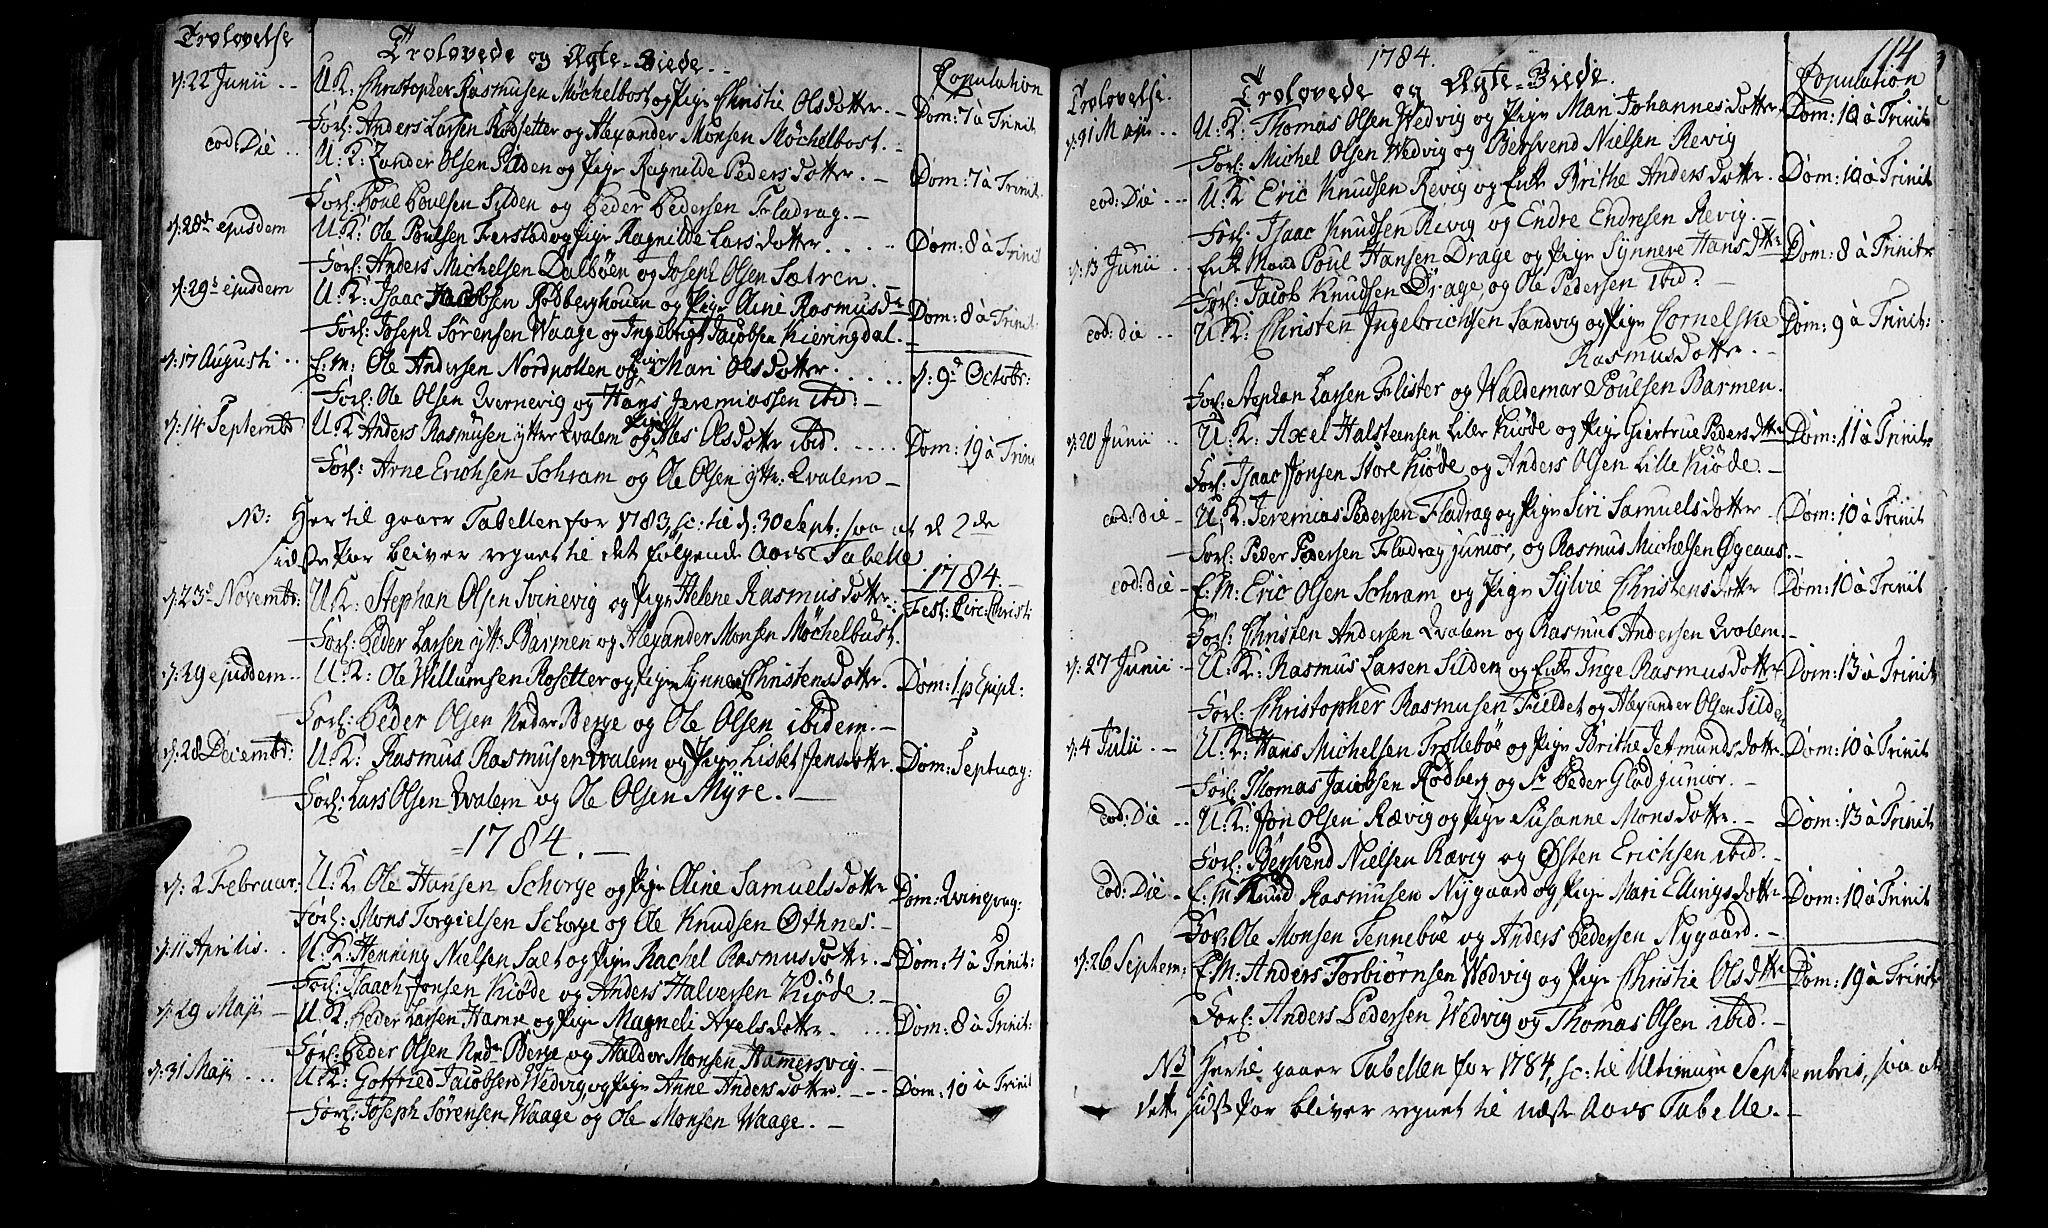 Trolovelse
Trolovede og Ægte-Viede.
Copulation
d: 22 Junii
U.K. Christopher Rasmusen Möchelbost og Pige Christie Olsdotter. Dom: 7 à Trinit:
Forl: Anders Larsen Rødsetter og Alexander Monsen Möchelbost.
eod: Die
U.K: Zander Olsen Silden og Pige Ragnilde Pedersdotter. Dom: 7 à Trinit.
Forl: Poul Poulsen Silden og Peder Pedersen Fladrag.
d: 28de ejusdem
U.K: Ole Poulsen Ferstad og Pige Ragnilde Larsdotter. Dom: 8 à Trinit
Forl: Anders Michelsen Dalbøen og Joseph Olsen Sætren.
d: 29de ejusdem
U.K: Isaac Jacobsen Rødberghouen og Pige Oline Rasmusdr Dom: 8 à Trinit:
Forl: Joseph Sørensen Waage og Ingebrigt Jacobsen Kieringdal.
d: 17 Augusti
E.M: Ole Andersen Nordpollen og Pige Mari Olsdotter. d: 9de Octobr:
Forl: Ole Olsen Qvernevig og Hans Jeremiassen ibid:
d: 14 Septembr
U.K Anders Rasmusen ytter Qvalem og Pige Ales Olsdotter ibid. Dom: 19 à Trini
Forl: Arne Erichsen Schram og Ole Olsen yttr: Qvalem
NB: Her til gaaer Tabellen for 1783, sc: til d: 30 Sept: saa at de 2de
sidste Par bliver regnet til det følgende Aars Tabelle
1784.
d: 23de Novembr:
U.K: Stephan Olsen Svinevig og Pige Helene Rasmusdotter: Fest: Circ: Christi:
Forl: Peder Larsen yttr Barmen og Alexander Monsen Möchelbust.
d: 29 ejusdem
U.K: Ole Willumsen Rosetter og Pige Synneve Christensdotter. Dom: 1 p Epiph:
Forl: Peder Olsen Nedre Berge og Ole Olsen ibidem.
d: 28 Decembr:
U.K: Rasmus Rasmusen Qvalem og Pige Lisbet Jensdotter Dom: Septuag:
Forl: Lars Olsen Qvalem og Ole Olsen Myre.
1784.
d: 2 Februar:
U.K. Ole Hansen Schorge og Pige Oline Samuelsdotter Dom: Qvinqvag:
Forl: Mons Torgielsen Schorge og Ole Knudsen Othnes.
d: 11 Aprilis.
U.K. Henning Nielsen Salt og Pige Rachel Rasmusdotter. Dom: 4 à Trinit:
Forl: Isaach Jonsen Kiøde og Anders Halversen Kiøde.
d: 29 Maji
U.K: Peder Larsen Hamre og Pige Magneli Axelsdotter. Dom: 8 à Trinit:
Forl: Peder Olsen Nedr Berge og Haldor Monsen Hamersvig.
d: 31 Maji
U.K: Gotfried Jacobsen Wedvig, og Pige Anne Andersdotter. Dom: 10 à Trinit
Forl: Joseph Sørensen Waage og Ole Monsen Waage.
1784.
114
Trolovelse.
Trolovede og Ægte-Viede.
Copulation
d: 31 Maji
U.K: Thomas Olsen Wedvig og Pige Mari Johannesdotter Dom: 10 à Trinit
Forl: Michel Olsen Wedvig og Bersvend Nielsen Revig
eod: Die
U.K Eric Knudsen Revig og Enk Brithe Andersdotter. Dom: 10 à Trinit
Forl: Isaac Knudsen Revig og Endre Endresen Revig.
d: 13 Junii
Enke Mand Poul Hansen Drage og Pige Synneve Hansdttr Dom: 8 à Trinit
Forl: Jacob Knudsen Drage og Ole Pedersen ibid:
eod: die
U.K: Christen Ingebrichsen Sandvig og Pige Cornelske Dom: 9 à Trinit:
Rasmusdotter.
Forl: Stephan Larsen Flister og Waldemar Poulsen Barmen.
d: 20 Junii
U.K: Axel Halsteensen Lille Kiøde og Pige Giertrue Pedersdttr Dom: 11 à Trinit
Forl: Isaac Jonsen Store Kiøde og Anders Olsen Lille Kiøde.
eod: die
U.K: Jeremias Pedersen Fladrag og Pige Siri Samuelsdotter Dom: 10 à Trinit
Forl: Peder Pedersen Fladrag junior, og Rasmus Michelsen Øgeaas.
eod: die
E.M: Eric Olsen Schram og Pige Sylvie Christensdotter Dom: 10 à Trinit
Forl: Christen Andersen Qvalem og Rasmus Andersen Qvalem.
d: 27 Junii
U.K: Rasmus Larsen Silden og Enk Inge Rasmusdotter Dom: 13 à Trinit
Forl: Christopher Rasmusen Fieldet og Alexander Olsen Silden
d: 4 Julii
U.K: Hans Michelsen Trollebøe og Pige Brithe Jetmundsdotter. Dom: 10 à Trinit
Forl: Thomas Jacobsen Rødberg og Sr Peder Glad junior.
eod: Die
U.K: Jon Olsen Rævig og Pige Susanne Monsdotter. Dom: 13 à Trinit
Forl: Bersvend Nielsen Rævig og Østen Erichsen ibid.
eod: Die
E.M Knud Rasmusen Nygaard og Pige Mari Ellingsdotter Dom: 10 à Trinit
For: Ole Monsen Tennebøe og Anders Pedersen Nygaard.
d: 26 Septem:
E.M: Anders Torbiørnsen Wedvig og Pige Christie Olsdttr Dom: 19 à Trinit
Forl: Anders Pedersen Wedvig og Thomas Olsen ibid.
NB Hertil gaaer Tabellen for 1784, sc: til Ultimum Septembris, saa at
dette sidste Par bliver regnet til næste Aars Tabelle.